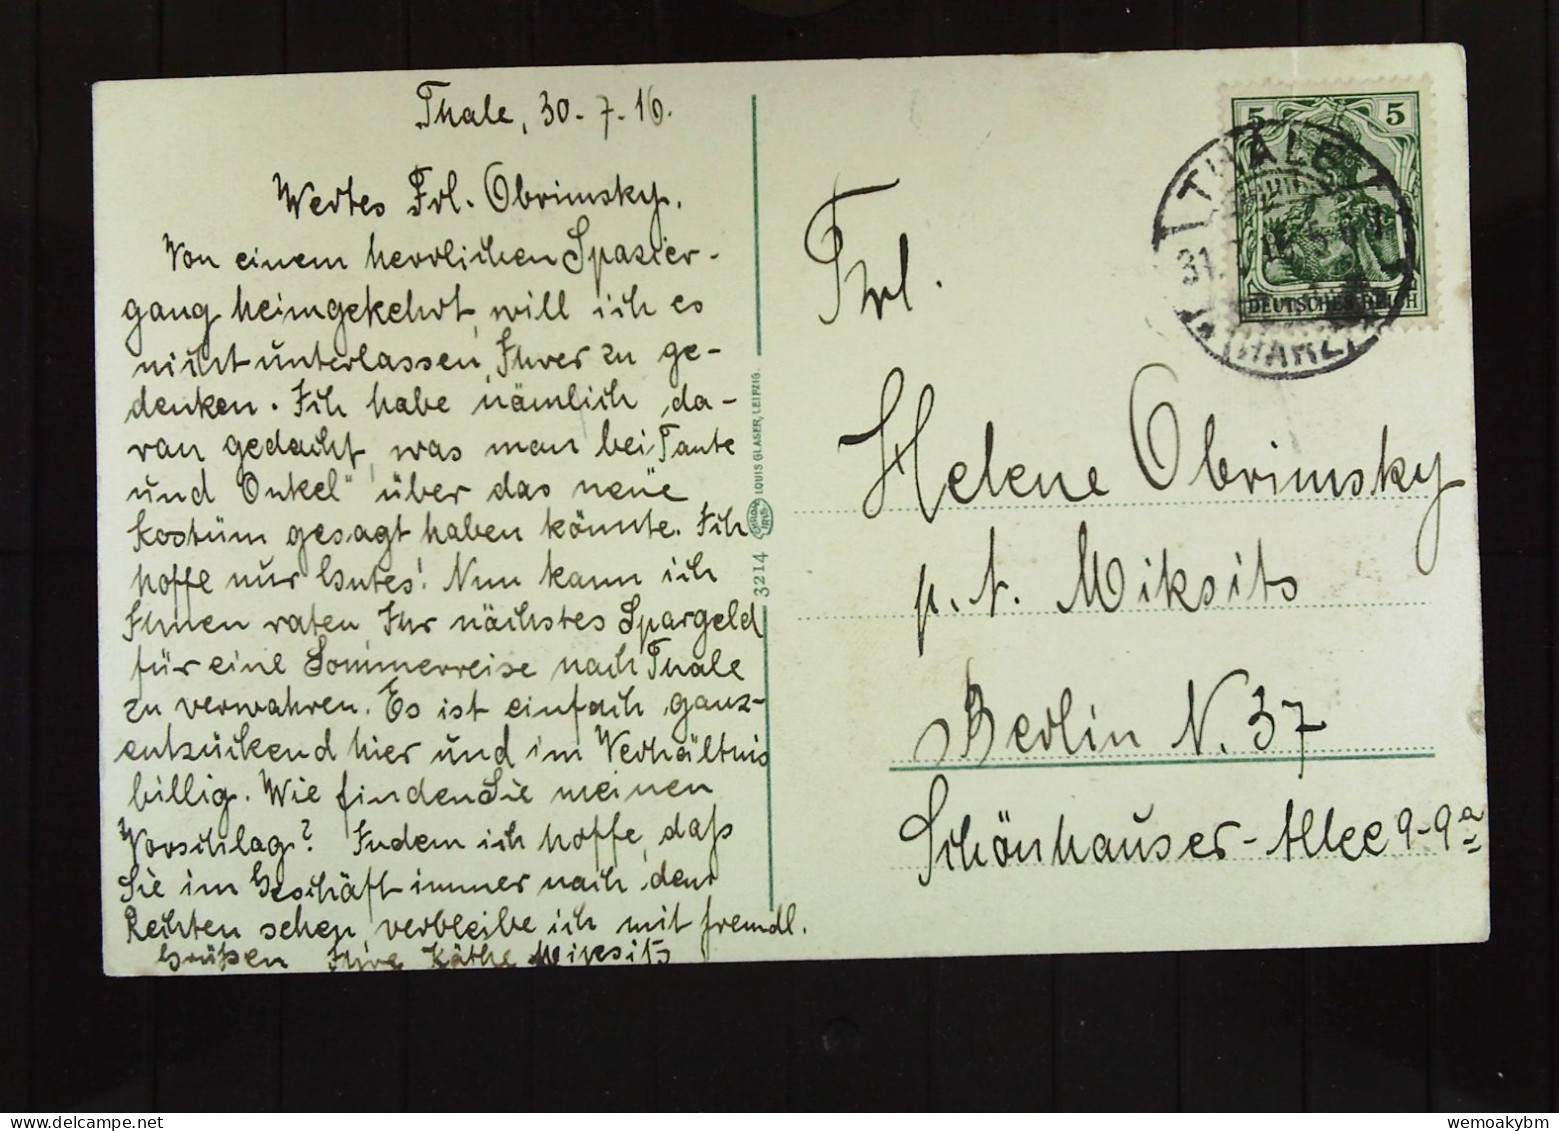 Thale, 30.-7.-16.
Wertes Frl. Obrimsky.
Von einem herrlichen Spazier-
gang heimgekehrt, will ich es
nicht unterlassen, Ihrer zu ge-
denken. Ich habe nämlich da-
ran gedacht, was man bei "Tante
und Onkel" über das neue
Kostüm gesagt haben könnte. Ich
hoffe nur Gutes! Nun kann ich
Ihnen raten, Ihr nächstes Spargeld
für eine Sommerreise nach Thale
zu verwahren. Es ist einfach ganz-
entzückend hier und im Verhältnis
billig. Wie finden Sie meinen
Vorschlag? Indem ich hoffe, daß
Sie im Geschäft immer nach dem
Rechten sehen, verbleibe ich mit freundl.
Grüßen Ihre Käthe Miksits
3214
LOUIS GLASER, LEIPZIG.
5 5
DEUTSCHES REICH
THALE
(HARZ)
Frl.
Helene Obrimsky
p. A. Miksits
Berlin N. 37
Schönhauser-Allee 9-9a
wemoakybm